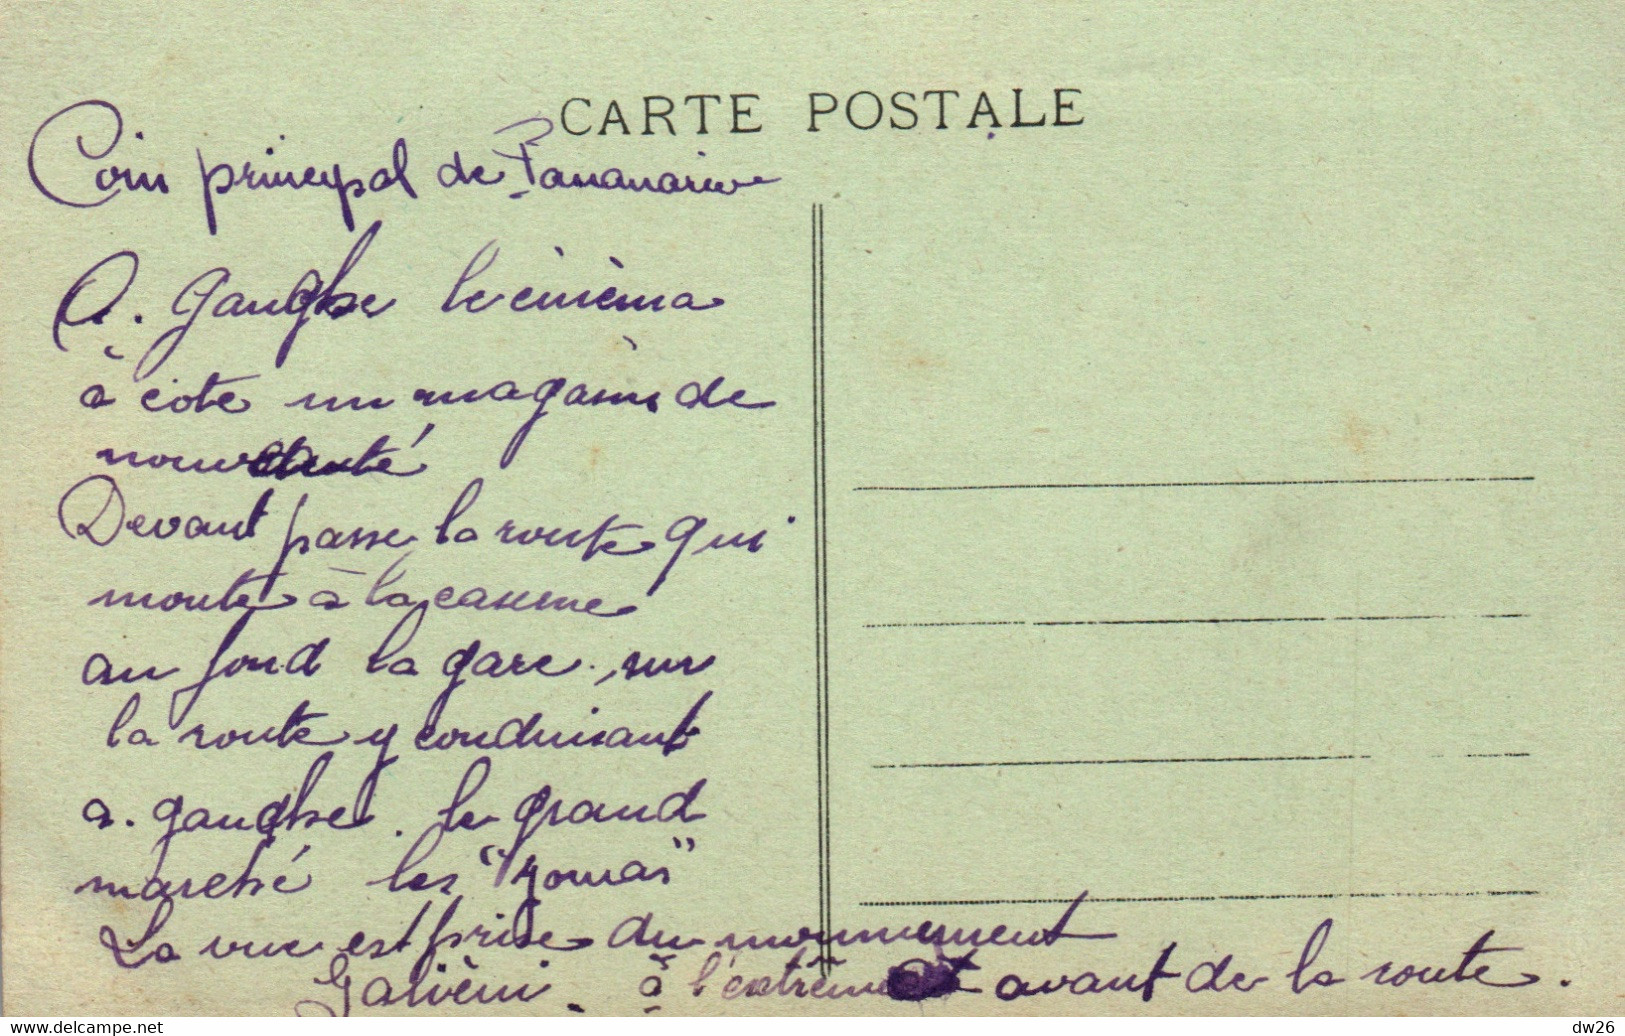 CARTE POSTALE
Coin principal de Tananarive
A. gauche le cinèma
à cote un magasin de
nouveauté
Devant passe la route qui
monte à la caserne
au fond la gare. sur
la route y conduisant
a. gauche. le grand
marché les "zomas"
La vue est prise du monnument
Galièni. à l'extrême avant de la route.
dw26
www.delcampe.net